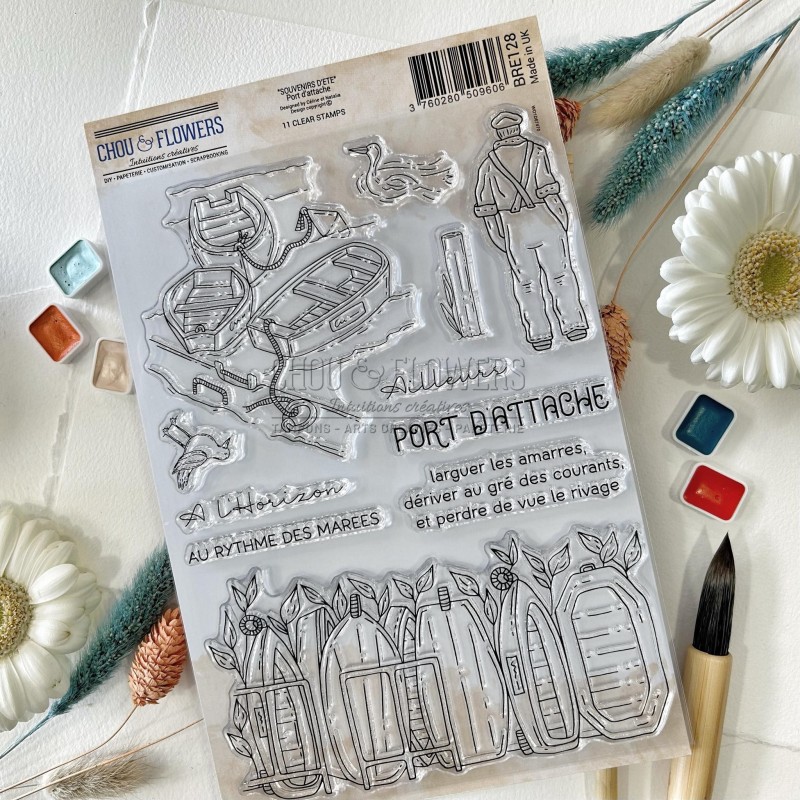 CHOU & FLOWERS
Intuitions créatives
DIY • PAPETERIE • CUSTOMISATION • SCRAPBOOKING
"SOUVENIRS D'ETE"
Port d'attache
Designed by Céline et Natalia
Design copyright©
11 CLEAR STAMPS
3 760280 509606
BRE128
Made in UK
CHOU & FLOWERS
Intuitions créatives
Ailleurs
PORT D'ATTACHE
larguer les amarres,
dériver au gré des courants,
et perdre de vue le rivage
A l'Horizon
AU RYTHME DES MAREES